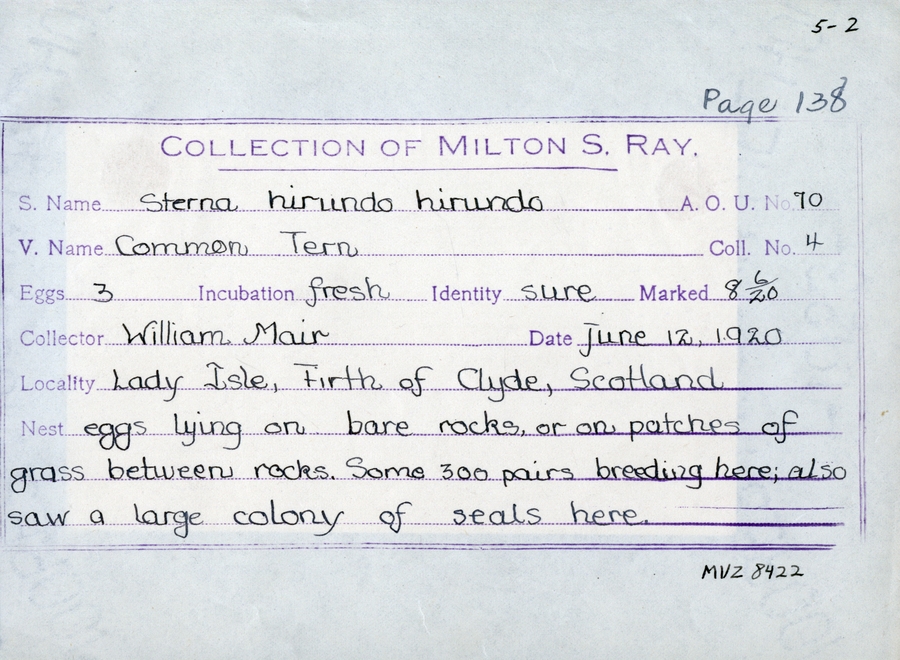 5-2
Page 138
COLLECTION OF MILTON S. RAY.
S. Name Sterna hirundo hirundo A. O. U. No. 70
V. Name Common Tern Coll. No. 4
Eggs 3 Incubation fresh Identity sure Marked 8 6/20
Collector William Mair Date June 12, 1920
Locality Lady Isle, Firth of Clyde, Scotland
Nest eggs lying on bare rocks, or on patches of
grass between rocks. Some 300 pairs breeding here; also
saw a large colony of seals here.
MVZ 8422